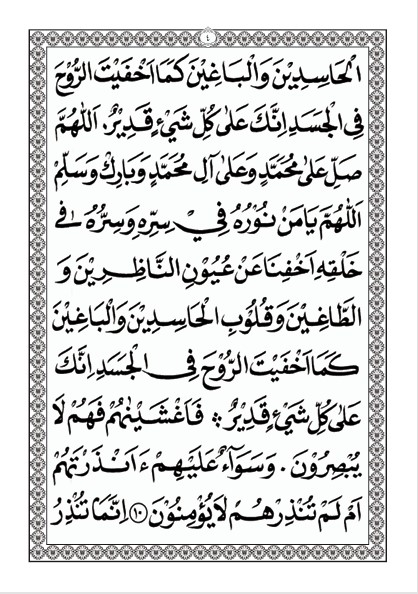 ٤
الْحَاسِدِيْنَ وَالْبَاغِيْنَ كَمَا اَخْفَيْتَ الرُّوْحَ
فِى الْجَسَدِ اِنَّكَ عَلٰى كُلِّ شَيْءٍ قَدِيْرٌ. اَللّٰهُمَّ
صَلِّ عَلٰى مُحَمَّدٍ وَعَلٰى آلِ مُحَمَّدٍ وَبَارِكْ وَسَلِّمْ
اَللّٰهُمَّ يَا مَنْ نُوْرُهُ فِيْ سِرِّهِ وَسِرُّهُ فِى
خَلْقِهِ اَخْفِنَا عَنْ عُيُوْنِ النَّاظِرِيْنَ وَ
الطَّاغِيْنَ وَقُلُوْبِ الْحَاسِدِيْنَ وَالْبَاغِيْنَ
كَمَا اَخْفَيْتَ الرُّوْحَ فِى الْجَسَدِ اِنَّكَ
عَلٰى كُلِّ شَيْءٍ قَدِيْرٌ فَاَغْشَيْنٰهُمْ فَهُمْ لَا
يُبْصِرُوْنَ. وَسَوَآءٌ عَلَيْهِمْ ءَاَنْذَرْتَهُمْ
اَمْ لَمْ تُنْذِرْهُمْ لَا يُؤْمِنُوْنَ ١٠ اِنَّمَا تُنْذِرُ